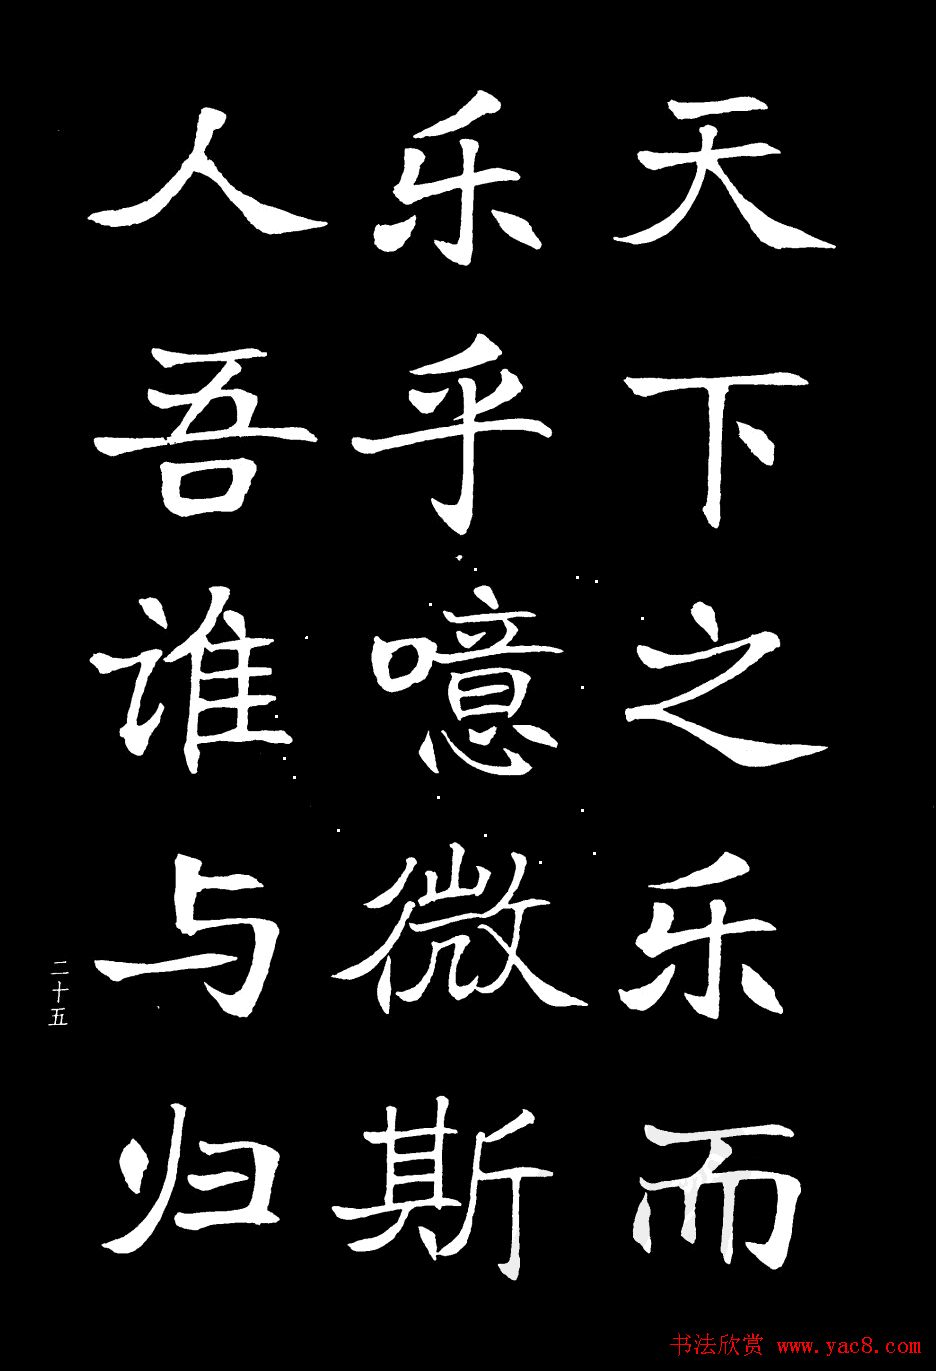 天下之乐而
乐乎噫微斯
人吾谁与归
二十五
书法欣赏 www.yac8.com